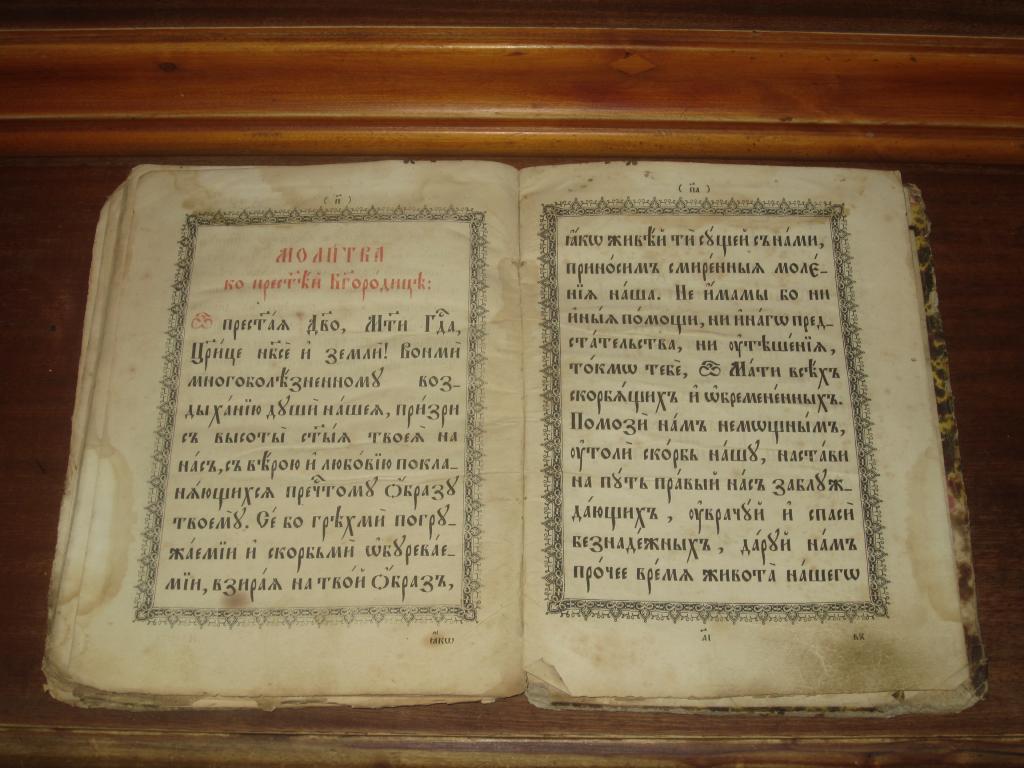 ( п҃ )
МОЛИ́ТВА
ко прест҃ѣ́й Бг҃оро́дицѣ:
Ѽ прест҃а́я Дв҃о, Мт҃и Гдⷭ҇а,
Цр҃и́це нб҃сѐ и҆ землѝ! Вонмѝ
многоболѣ́зненному воз-
дыха́нїю душѝ на́шея, при́зри
съ высоты̀ ст҃ы́я твоея̀ на
на́съ, съ вѣ́рою и҆ любо́вїю покла-
ня́ющихся пречⷭ҇тому Ѻ҆́бразу
твоемꙋ̀. Се́ бо грѣхмѝ погру-
жа́емїи и҆ скорбьмѝ ѡ҆бурева́е-
мїи, взира́я на тво́й Ѻ҆́бразъ,
ꙗ҆́кѡ
( п҃а )
ꙗ҆́кѡ живѣ́й тѝ су́щей съ на́ми,
прино́симъ смире́нныя моле́-
нїя на́ша. Не и҆́мамы бо ни
и҆ны́я по́мощи, ни и҆на́гѡ пред-
ста́тельства, ни ᲂу҆тѣше́нїя,
то́кмѡ тебѐ, Ѽ Ма́ти всѣ́хъ
скорбя́щихъ и҆ ѡ҆бремене́нныхъ.
Помозѝ на́мъ немѡщны̑мъ,
ᲂу҆толѝ ско́рбь на́шу, наста́ви
на пу́ть пра́вый на́съ заблуж-
да́ющихъ, ᲂу҆врачу́й и҆ спасѝ
безнадежныхъ, да́руй на́мъ
про́чее вре́мя живота̀ на́шегѡ
а҃і
вꙋ